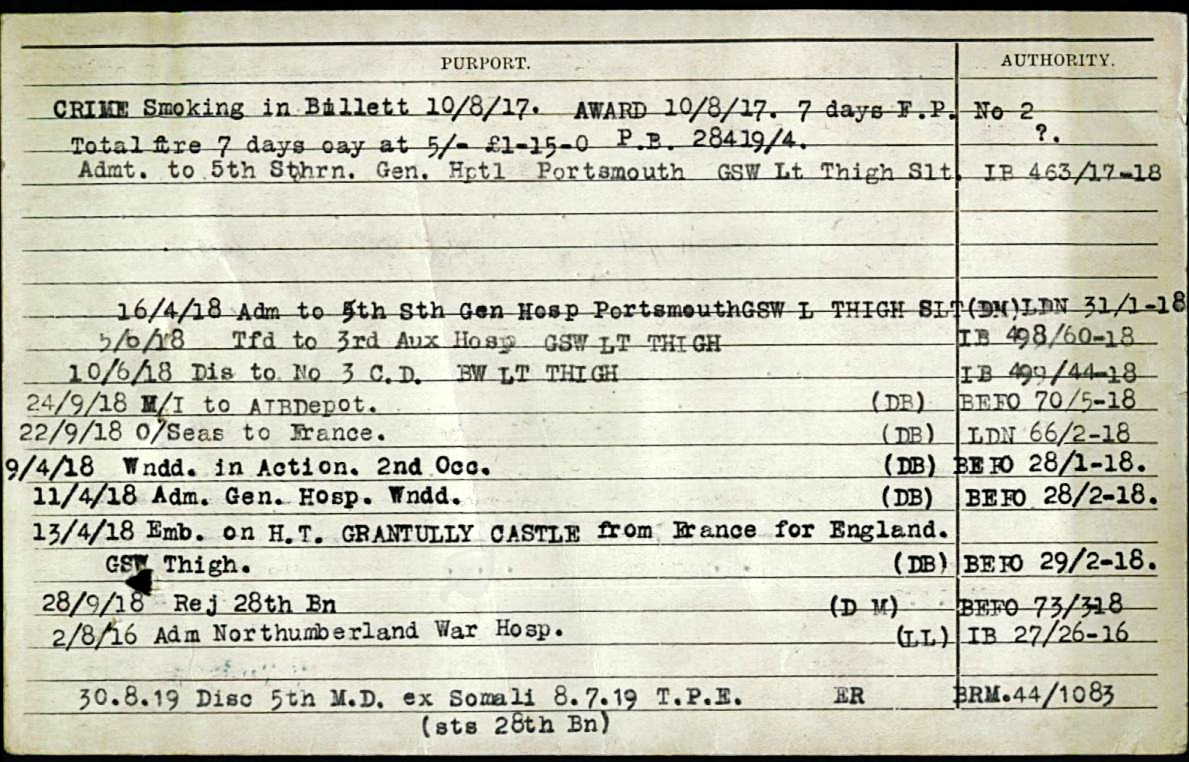 PURPORT. AUTHORITY.
CRIME Smoking in Billett 10/8/17. AWARD 10/8/17. 7 days F.P. No 2
Total ftre 7 days oay at 5/- £1-15-0 P.B. 28419/4. ?.
Admt. to 5th Sthrn. Gen. Hptl Portsmouth GSW Lt Thigh Slt. IB 463/17-18
16/4/18 Adm to 5th Sth Gen Hosp PortsmouthGSW L THIGH SLT(DM)LDN 31/1-18
5/6/18 Tfd to 3rd Aux Hosp GSW LT THIGH IB 498/60-18
10/6/18 Dis to No 3 C.D. BW LT THIGH IB 499/44-18
24/9/18 M/I to AIBDepot. (DB) BEFO 70/5-18
22/9/18 O/Seas to France. (DB) LDN 66/2-18
9/4/18 Wndd. in Action. 2nd Occ. (DB) BEFO 28/1-18.
11/4/18 Adm. Gen. Hosp. Wndd. (DB) BEFO 28/2-18.
13/4/18 Emb. on H.T. GRANTULLY CASTLE from France for England.
GSW Thigh. (DB) BEFO 29/2-18.
28/9/18 Rej 28th Bn (D M) BEFO 73/318
2/8/16 Adm Northumberland War Hosp. (LL) IB 27/26-16
30.8.19 Disc 5th M.D. ex Somali 8.7.19 T.P.E. ER BRM.44/1083
(sts 28th Bn)